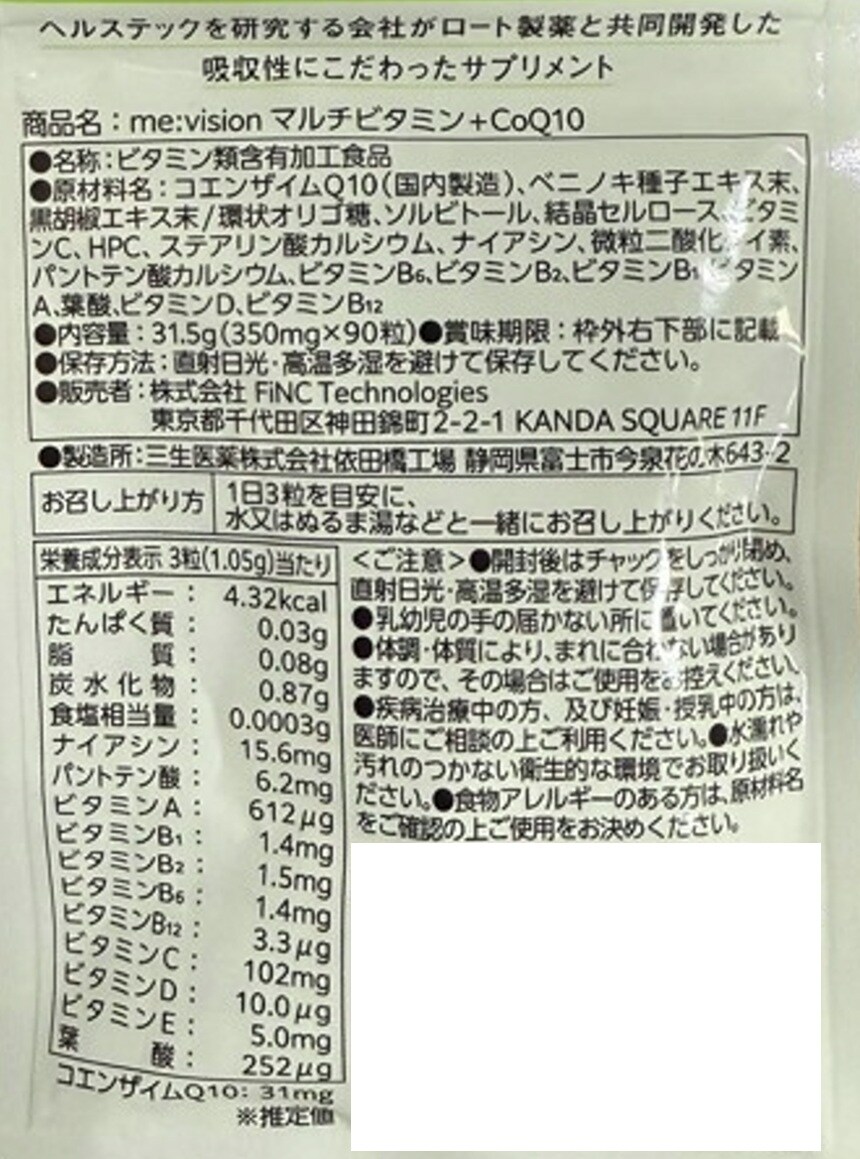 ヘルステックを研究する会社がロート製薬と共同開発した
吸収性にこだわったサプリメント
商品名：me:vision マルチビタミン+CoQ10
●名称：ビタミン類含有加工食品
●原材料名：コエンザイムQ10（国内製造）、ベニノキ種子エキス末、
黒胡椒エキス末/環状オリゴ糖、ソルビトール、結晶セルロース、ビタミ
ンC、HPC、ステアリン酸カルシウム、ナイアシン、微粒二酸化ケイ素、
パントテン酸カルシウム、ビタミンB6、ビタミンB2、ビタミンB1、ビタミン
A、葉酸、ビタミンD、ビタミンB12
●内容量：31.5g（350mg×90粒）●賞味期限：枠外右下部に記載
●保存方法：直射日光・高温多湿を避けて保存してください。
●販売者：株式会社 FiNC Technologies
東京都千代田区神田錦町2-2-1 KANDA SQUARE 11F
●製造所：三生医薬株式会社依田橋工場 静岡県富士市今泉花の木643-2
お召し上がり方
1日3粒を目安に、
水又はぬるま湯などと一緒にお召し上がりください。
栄養成分表示 3粒(1.05g)当たり
エネルギー： 4.32kcal
たんぱく質： 0.03g
脂　　質： 0.08g
炭水化物： 0.87g
食塩相当量： 0.0003g
ナイアシン： 15.6mg
パントテン酸： 6.2mg
ビタミンA： 612μg
ビタミンB1： 1.4mg
ビタミンB2： 1.5mg
ビタミンB6： 1.4mg
ビタミンB12： 3.3μg
ビタミンC： 102mg
ビタミンD： 10.0μg
ビタミンE： 5.0mg
葉　　酸： 252μg
コエンザイムQ10：31mg
※推定値
＜ご注意＞●開封後はチャックをしっかり閉め、
直射日光・高温多湿を避けて保存してください。
●乳幼児の手の届かない所に置いてください。
●体調・体質により、まれに合わない場合があり
ますので、その場合はご使用をお控えください。
●疾病治療中の方、及び妊娠・授乳中の方は、
医師にご相談の上ご利用ください。●水濡れや
汚れのつかない衛生的な環境でお取り扱いく
ださい。●食物アレルギーのある方は、原材料名
をご確認の上ご使用をお決めください。